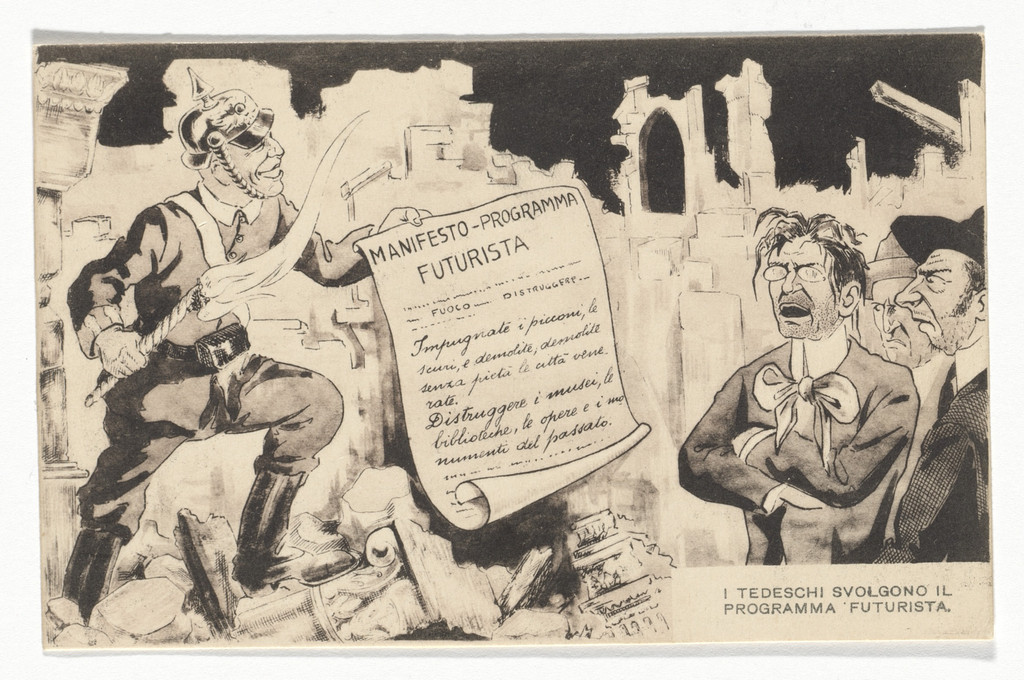 MANIFESTO-PROGRAMMA
FUTURISTA
FUOCO — DISTRUGGERE
Impugnate i picconi, le
scuri, e demolite, demolite
senza pietà le città vene-
rate.
Distruggere i musei, le
biblioteche, le opere e i mo
numenti del passato.
I TEDESCHI SVOLGONO IL
PROGRAMMA FUTURISTA.